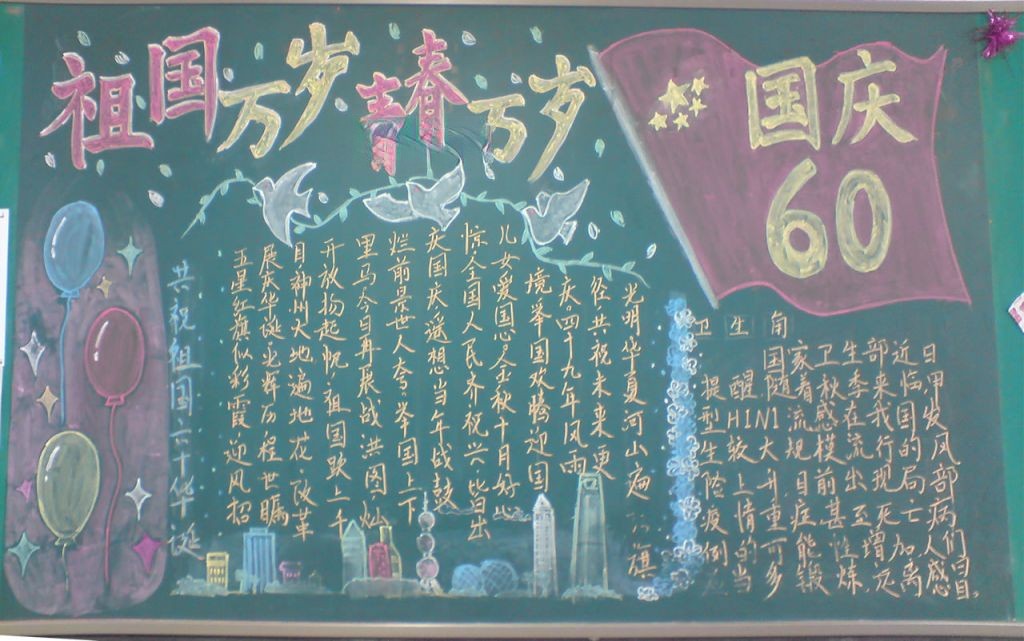 祖国万岁 青春万岁
国庆
60
共祝祖国六十华诞
五星红旗似彩霞 迎风招
展庆华诞 光辉历程世瞩
目 神州大地遍地花。改革
开放扬起帆。祖国跃上千
里马 今日再展战洪图。灿
烂前景世人夸。举国上下
庆国庆 遥想当年战鼓
惊 全国人民齐祝兴。皆出
儿女爱国心 金秋十月好
境 举国欢腾迎国
庆。四十九年风雨
径 共祝未来更
光明 华夏河山遍
旗
卫生角
国家卫生部近日
提醒随着秋季来临甲
型H1N1流感在我国发
生较大规模流行的风
险上升目前出现局部
疫情重症甚至死亡病
例的可能性增加人们
应当多锻炼,远离感冒。